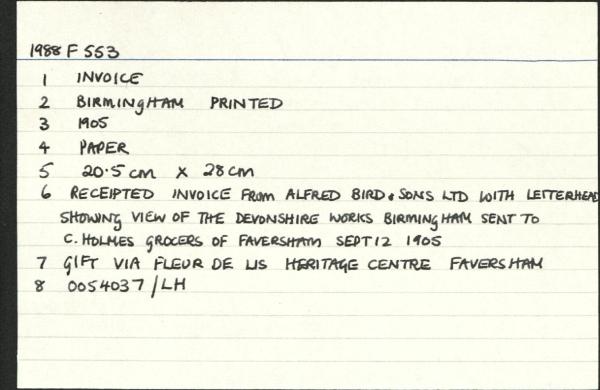 1988 F 553
1 INVOICE
2 BIRMINGHAM PRINTED
3 1905
4 PAPER
5 20·5 cm X 28 cm
6 RECEIPTED INVOICE FROM ALFRED BIRD & SONS LTD WITH LETTERHEAD
SHOWING VIEW OF THE DEVONSHIRE WORKS BIRMINGHAM SENT TO
C. HOLMES GROCERS OF FAVERSHAM SEPT 12 1905
7 GIFT VIA FLEUR DE LIS HERITAGE CENTRE FAVERSHAM
8 0054037/LH